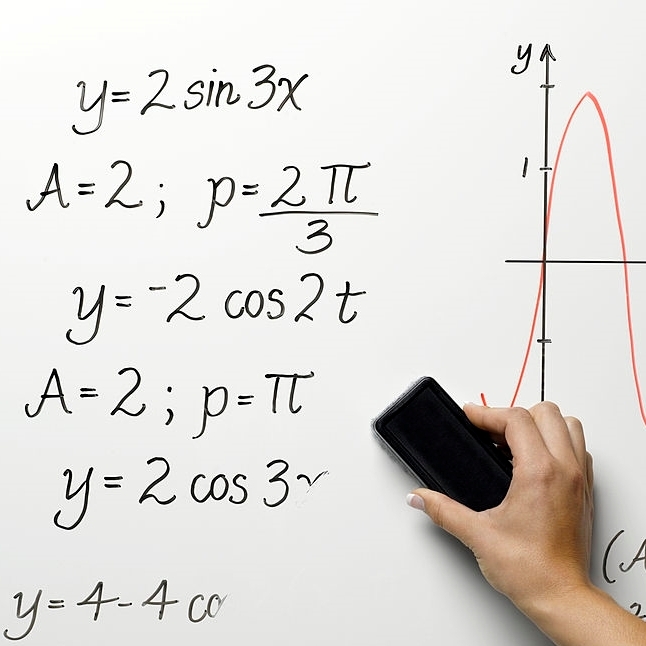 y = 2 sin 3x
A = 2 ; p = 2π/3
y = -2 cos 2t
A = 2 ; p = π
y = 2 cos 3
y = 4 - 4 co
y
1
(A